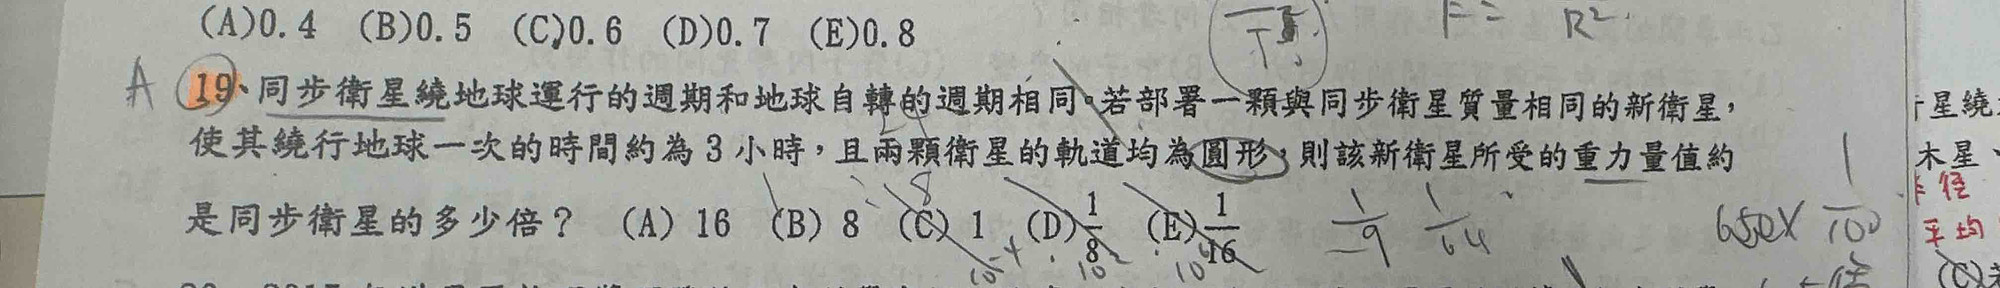 (A)0.4 (B)0.5 (C)0.6 (D)0.7 (E)0.8
F= R²
A 19、同步衛星繞地球運行的週期和地球自轉的週期相同。若部署一顆與同步衛星質量相同的新衛星，
使其繞行地球一次的時間約為 3 小時，且兩顆衛星的軌道均為圓形，則該新衛星所受的重力量值約
是同步衛星的多少倍？ (A) 16 (B) 8 (C) 1 (D) 1/8 (E) 1/16
1/9 1/64
650× 1/100
星繞
木星、
徑
平均
(C)